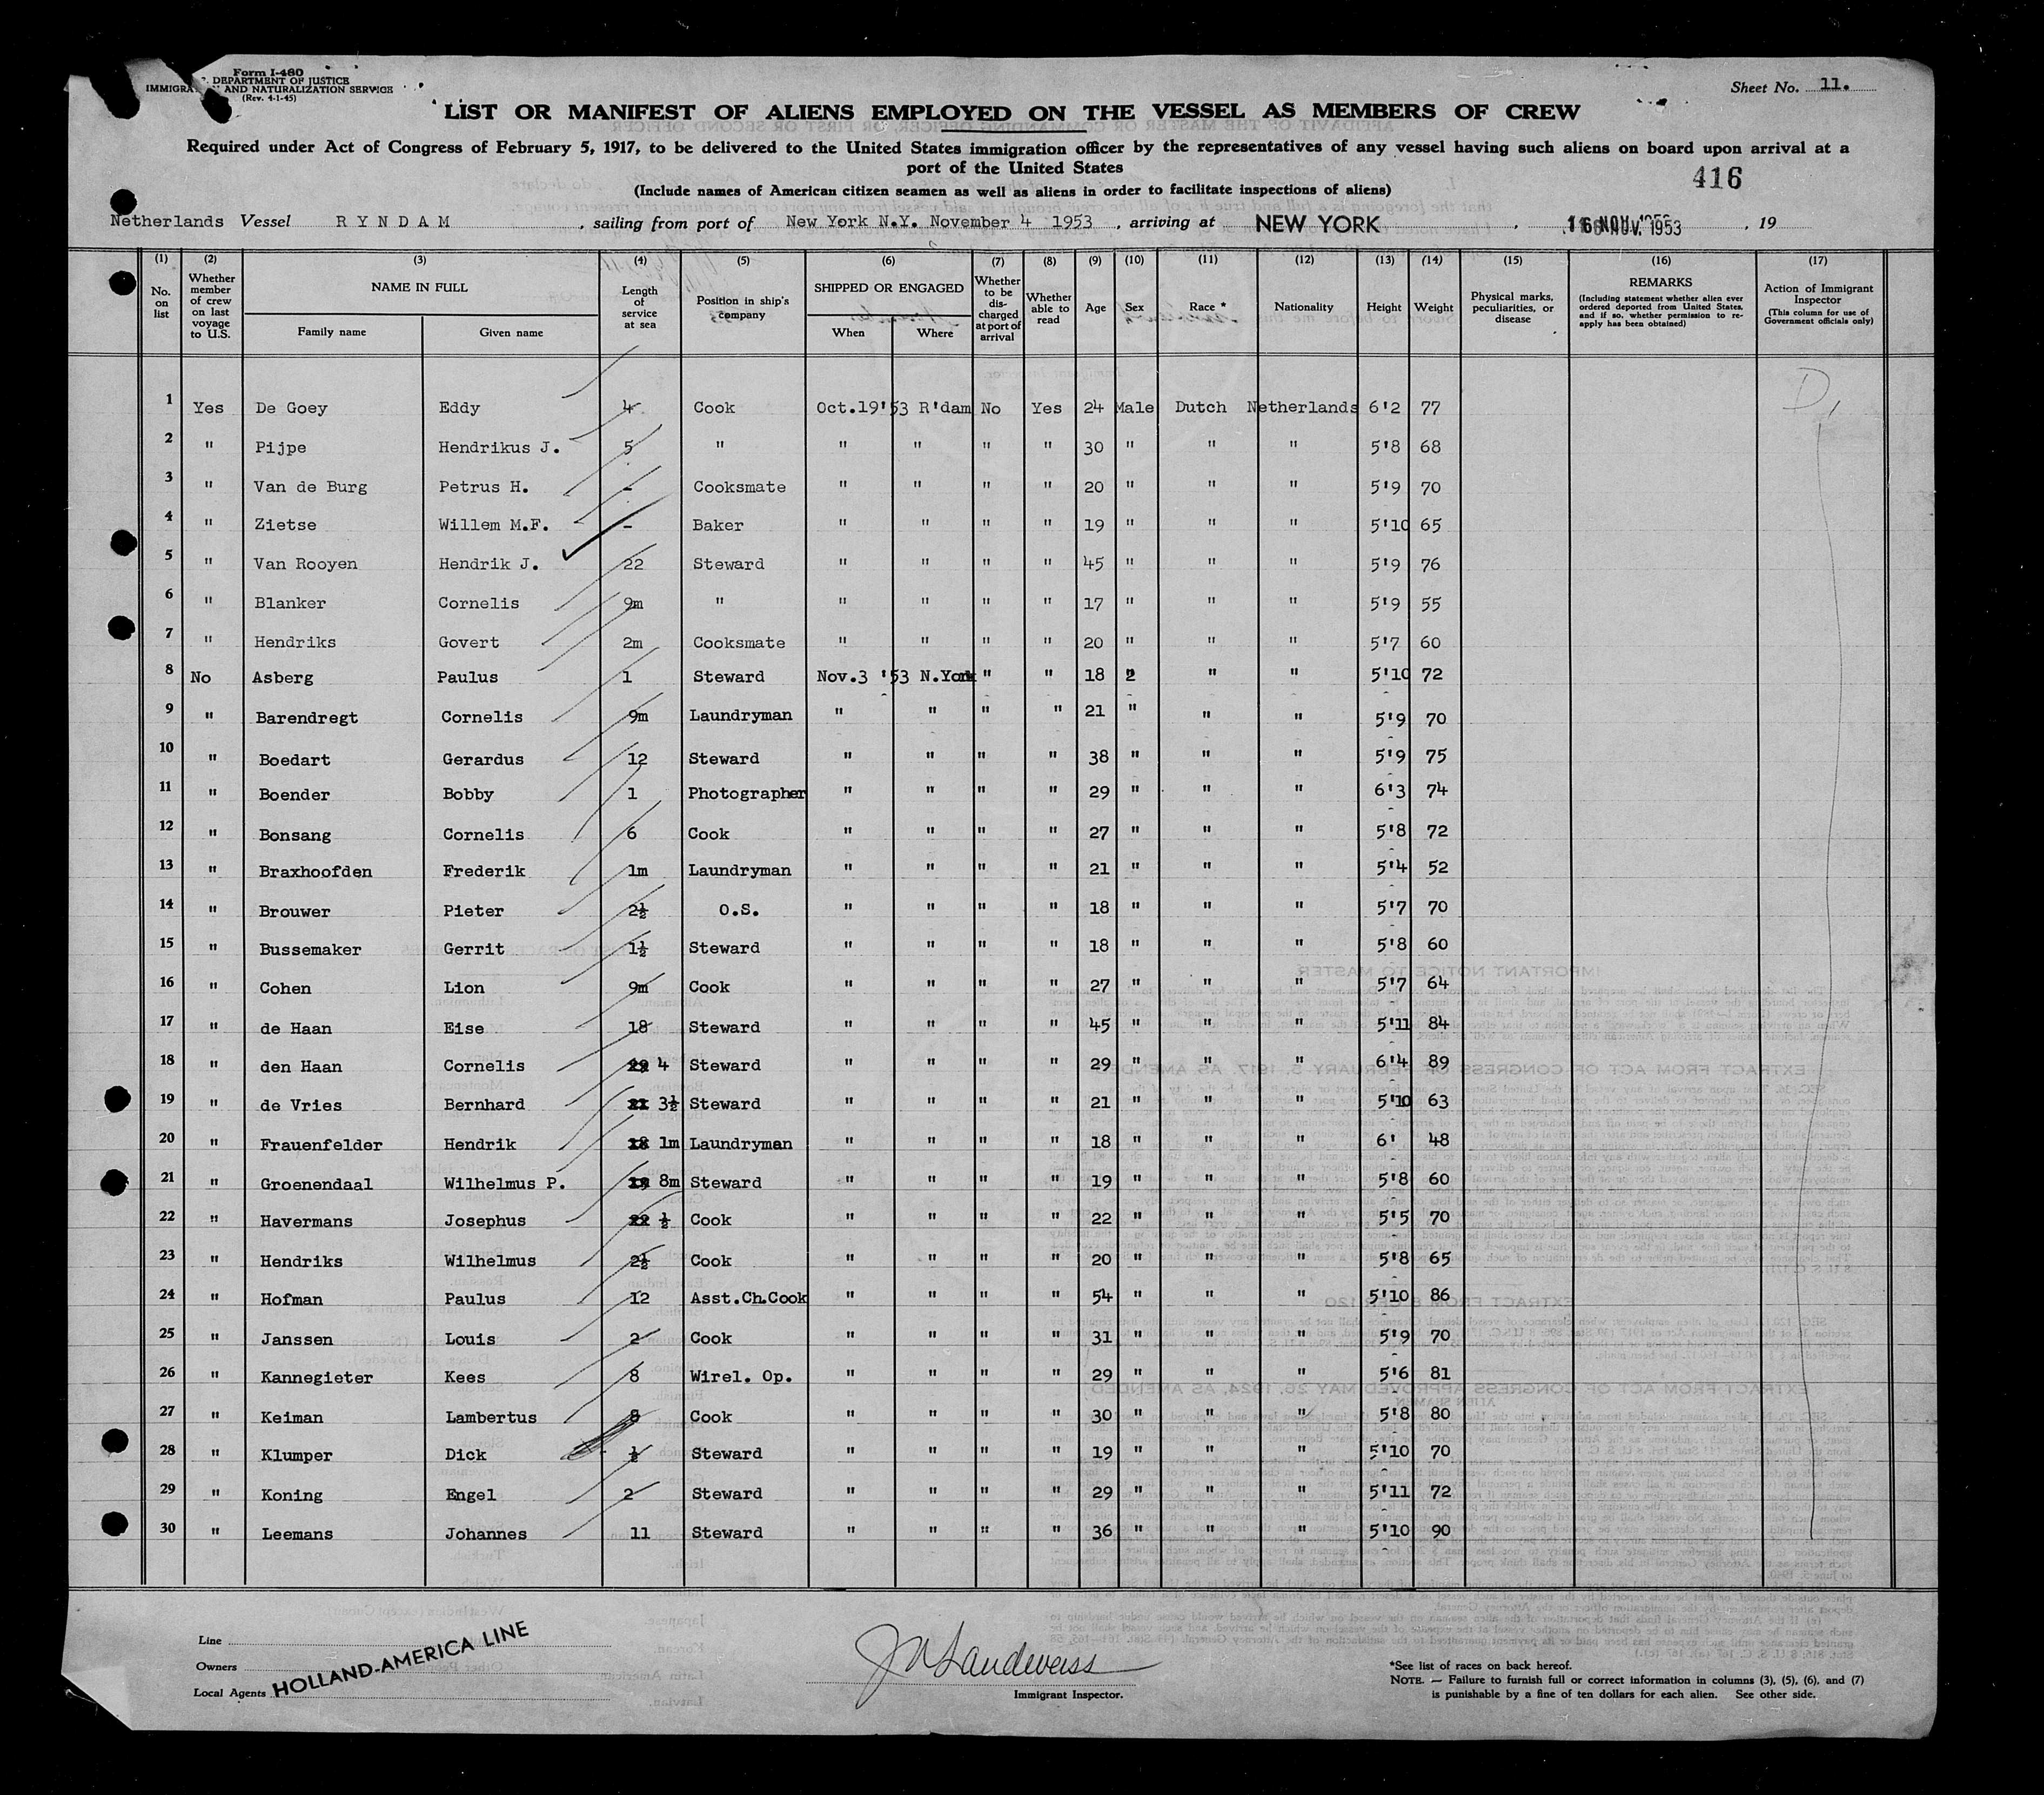 Form I-480
DEPARTMENT OF JUSTICE
IMMIGRA AND NATURALIZATION SERVICE
(Rev. 4-1-45)
Sheet No. 11.
LIST OR MANIFEST OF ALIENS EMPLOYED ON THE VESSEL AS MEMBERS OF CREW
Required under Act of Congress of February 5, 1917, to be delivered to the United States immigration officer by the representatives of any vessel having such aliens on board upon arrival at a
port of the United States
416
(Include names of American citizen seamen as well as aliens in order to facilitate inspections of aliens)
Netherlands Vessel RYNDAM , sailing from port of New York N.Y. November 4 1953 , arriving at NEW YORK , 16 NOV. 1953 , 19
(1) No. on list
(2) Whether member of crew on last voyage to U.S.
(3) NAME IN FULL Family name Given name
(4) Length of service at sea
(5) Position in ship's company
(6) SHIPPED OR ENGAGED When Where
(7) Whether to be discharged at port of arrival
(8) Whether able to read
(9) Age
(10) Sex
(11) Race *
(12) Nationality
(13) Height
(14) Weight
(15) Physical marks, peculiarities, or disease
(16) REMARKS (Including statement whether alien ever ordered deported from United States, and if so, whether permission to re-apply has been obtained)
(17) Action of Immigrant Inspector (This column for use of Government officials only)
1 Yes De Goey Eddy 4 Cook Oct.19'53 R'dam No Yes 24 Male Dutch Netherlands 6'2 77
2 " Pijpe Hendrikus J. 5 " " " " " 30 " " " 5'8 68
3 " Van de Burg Petrus H. - Cooksmate " " " " 20 " " " 5'9 70
4 " Zietse Willem M.F. - Baker " " " " 19 " " " 5'10 65
5 " Van Rooyen Hendrik J. 22 Steward " " " " 45 " " " 5'9 76
6 " Blanker Cornelis 9m " " " " " 17 " " " 5'9 55
7 " Hendriks Govert 2m Cooksmate " " " " 20 " " " 5'7 60
8 No Asberg Paulus 1 Steward Nov.3 '53 N.York " " 18 " " " 5'10 72
9 " Barendregt Cornelis 9m Laundryman " " " " 21 " " " 5'9 70
10 " Boedart Gerardus 12 Steward " " " " 38 " " " 5'9 75
11 " Boender Bobby 1 Photographer " " " " 29 " " " 6'3 74
12 " Bonsang Cornelis 6 Cook " " " " 27 " " " 5'8 72
13 " Braxhoofden Frederik 1m Laundryman " " " " 21 " " " 5'4 52
14 " Brouwer Pieter 2½ O.S. " " " " 18 " " " 5'7 70
15 " Bussemaker Gerrit 1½ Steward " " " " 18 " " " 5'8 60
16 " Cohen Lion 9m Cook " " " " 27 " " " 5'7 64
17 " de Haan Eise 18 Steward " " " " 45 " " " 5'11 84
18 " den Haan Cornelis 4 Steward " " " " 29 " " " 6'4 89
19 " de Vries Bernhard 3½ Steward " " " " 21 " " " 5'10 63
20 " Frauenfelder Hendrik 1m Laundryman " " " " 18 " " " 6' 48
21 " Groenendaal Wilhelmus P. 8m Steward " " " " 19 " " " 5'8 60
22 " Havermans Josephus ½ Cook " " " " 22 " " " 5'5 70
23 " Hendriks Wilhelmus 2½ Cook " " " " 20 " " " 5'8 65
24 " Hofman Paulus 12 Asst.Ch.Cook " " " " 54 " " " 5'10 86
25 " Janssen Louis 2 Cook " " " " 31 " " " 5'9 70
26 " Kannegieter Kees 8 Wirel. Op. " " " " 29 " " " 5'6 81
27 " Keiman Lambertus 8 Cook " " " " 30 " " " 5'8 80
28 " Klumper Dick ½ Steward " " " " 19 " " " 5'10 70
29 " Koning Engel 2 Steward " " " " 29 " " " 5'11 72
30 " Leemans Johannes 11 Steward " " " " 36 " " " 5'10 90
Line
Owners
Local Agents
HOLLAND-AMERICA LINE
Immigrant Inspector.
*See list of races on back hereof.
NOTE. — Failure to furnish full or correct information in columns (3), (5), (6), and (7)
is punishable by a fine of ten dollars for each alien. See other side.